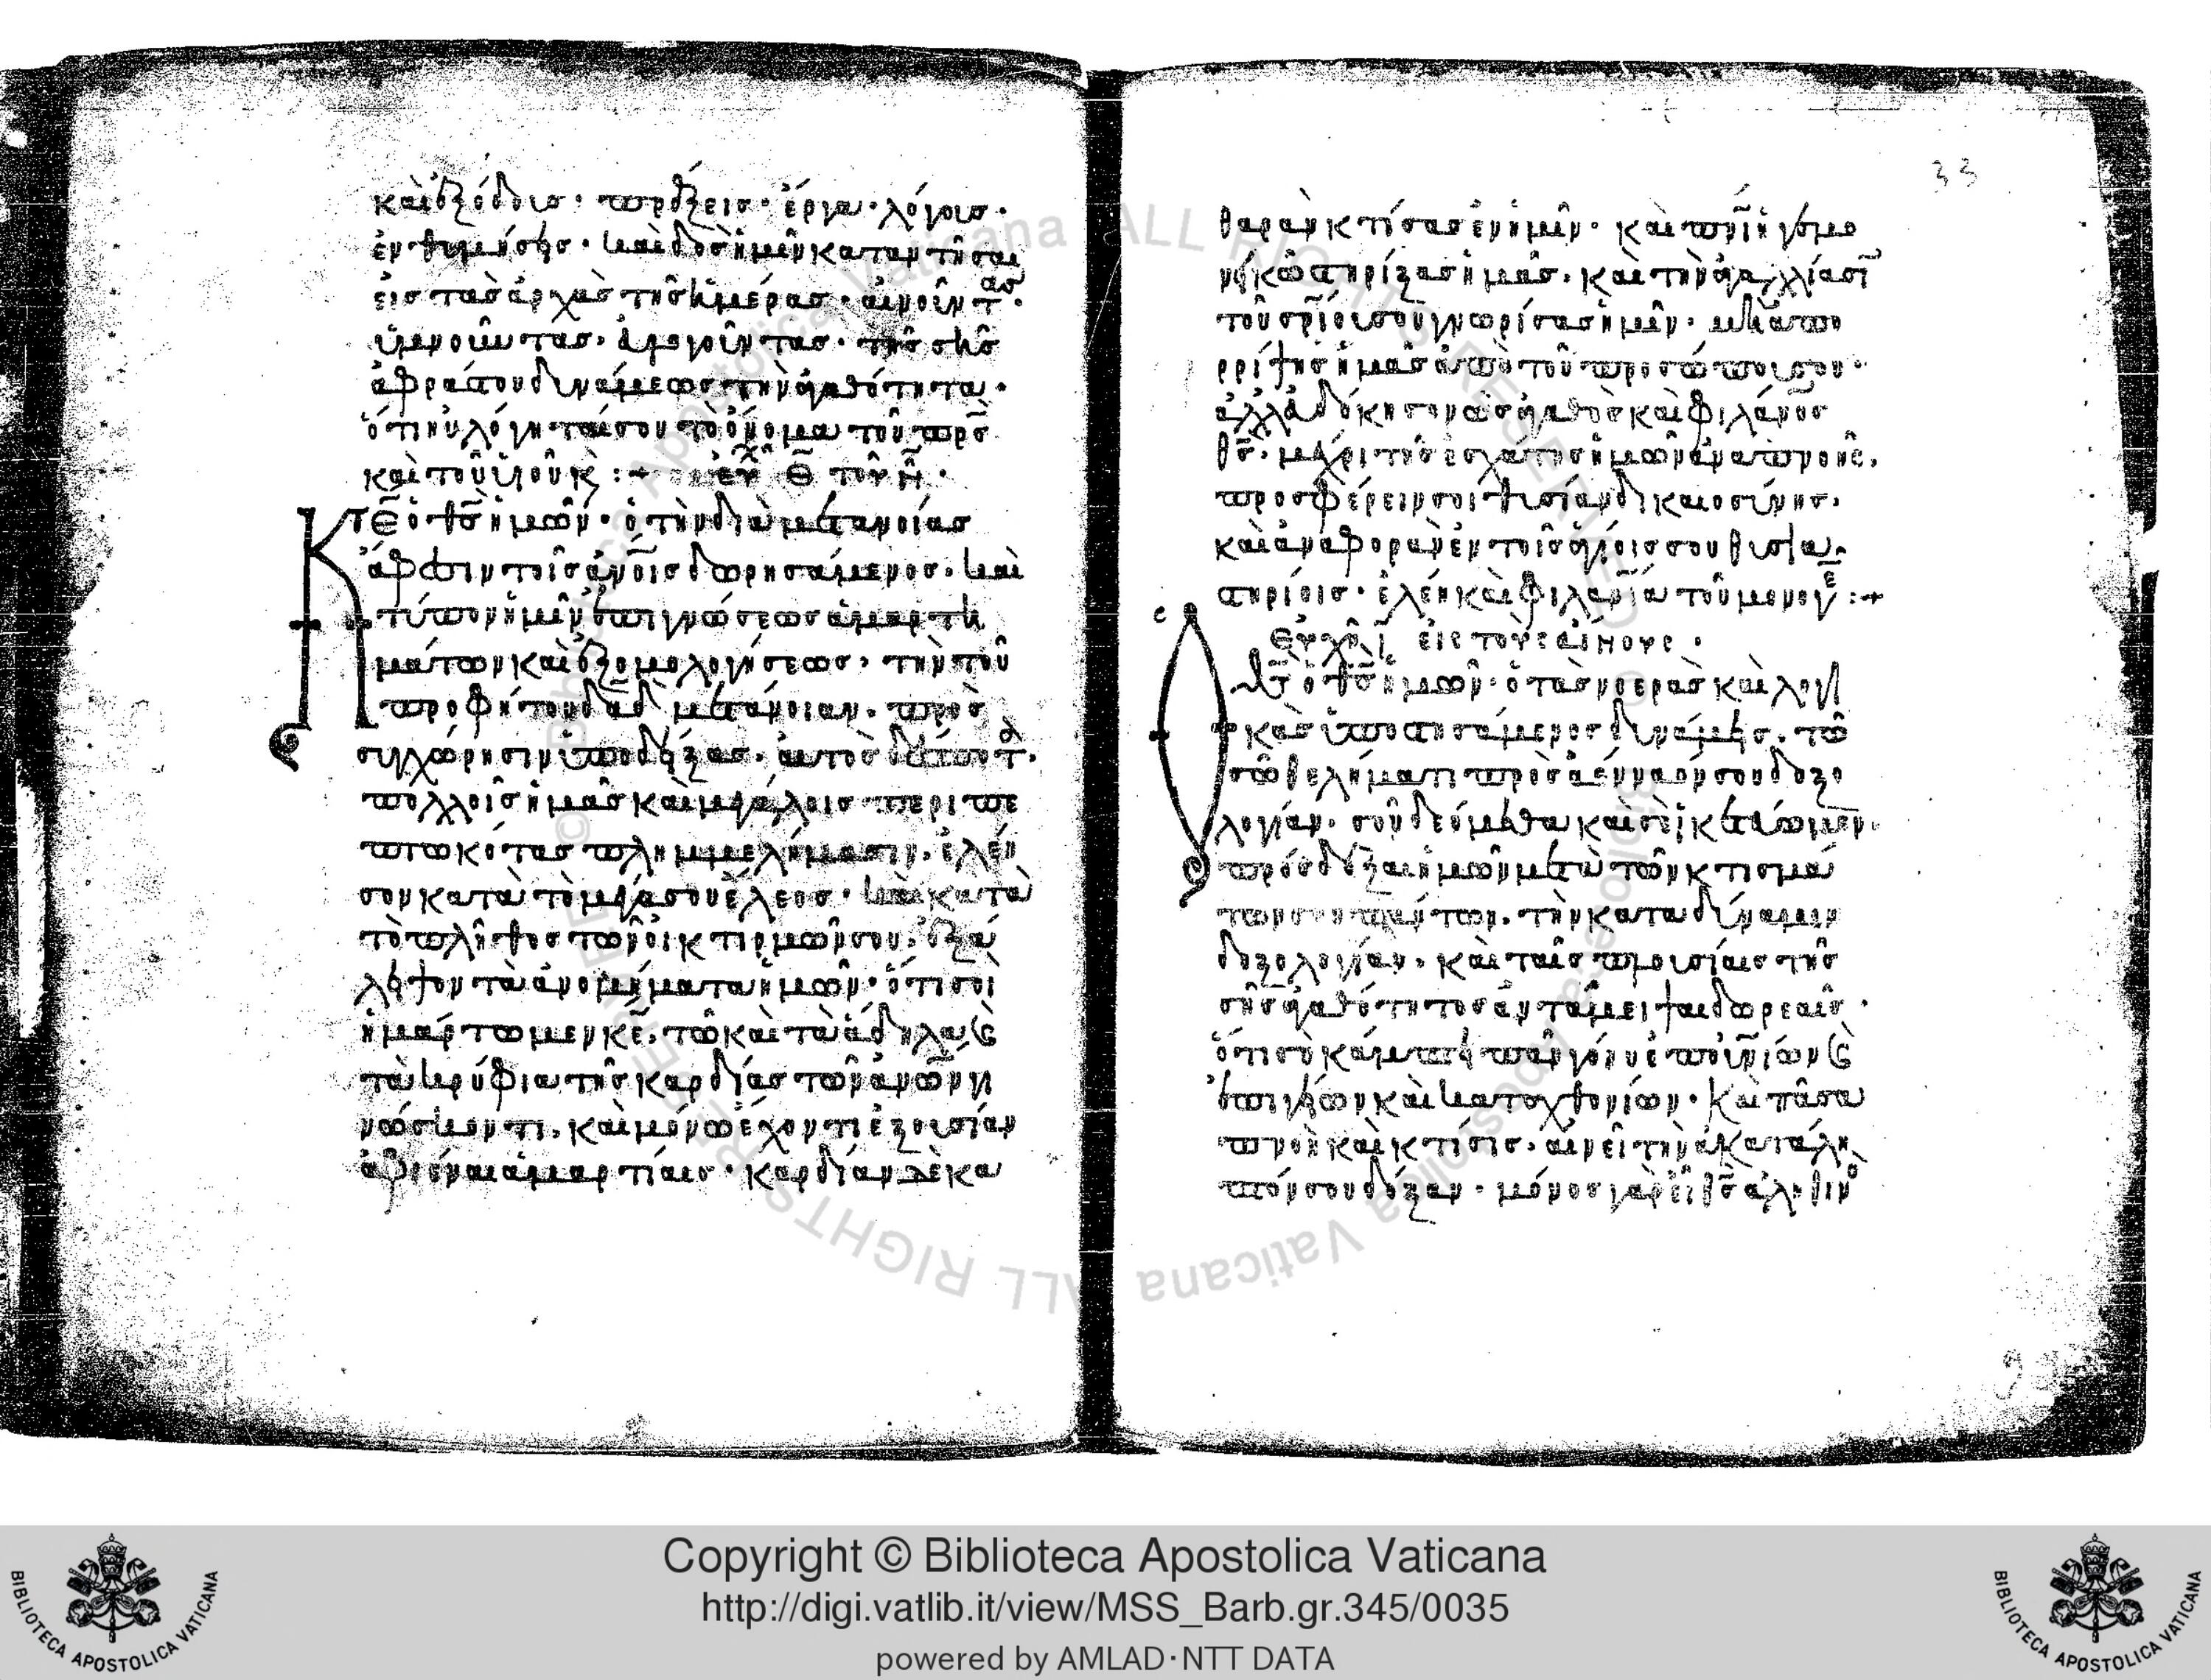 καὶ ἐξόδοις· πράξεις· ἔργα· λόγοις·
ἐνθυμήσεις· καὶ δὸς ἡμῖν καταντῆσαι
εἰς τὰς ἀρχὰς τῆς ἡμέρας· αἰνοῦντας·
ὑμνοῦντας· εὐλογοῦντας· τῆς σῆς
ἀφράστου δυνάμεως τὴν ἀγαθότητα·
ὅτι ηὐλόγηταί σου τὸ ὄνομα τοῦ πρς
καὶ τοῦ υἱοῦ κ :+ εὐχ Θ τοῦ Ν
Κε ὁ θς ἡμῶν· ὁ τὴν διὰ μετανοίας
ἄφεσιν τοῖς ἀνοις δωρησάμενος· καὶ
τύπον ἡμῖν ἐπιγνώσεως ἁμαρτη
μάτων καὶ ἐξομολογήσεως· τὴν τοῦ
προφήτου δαδ μετάνοιαν· πρὸς
συγχώρησιν ὑποδείξας· αὐτὸς δέσποτ·
πολλοῖς ἡμᾶς καὶ μεγάλοις περιπε
πτωκότας πλημμελήμασιν· ἐλέη
σον κατὰ τὸ μέγα σου ἔλεος· καὶ κατὰ
τὸ πλῆθος τῶν οἰκτιρμῶν σου· ἐξά
λειψον τὰ ἀνομήματα ἡμῶν· ὅτι σοὶ
ἡμάρτωμεν κε· τῶ καὶ τὰ ἄδηλα καὶ
τὰ κρύφια τῆς καρδίας τῶν ἀνων γι
νώσκοντι· καὶ μόνω ἔχοντι ἐξουσίαν
ἀφιέναι ἁμαρτίας· καρδίαν δὲ κα
33
θαρὰν κτίσας ἐν ἡμῖν· καὶ πνι ἡγεμο
νικῶ στηρίξας ἡμᾶς· καὶ τὴν ἀγαλλίασι
τοῦ σρίου σου γνωρίσας ἡμῖν· μὴ ἀπο
ρρίψης ἡμᾶς ἀπὸ τοῦ προσώπου σου·
ἀλλ' εὐδόκησον ὡς ἀγαθὸς καὶ φιλάνος
θς· μέχρι τῆς ἐσχάτης ἡμῶν ἀναπνοῆς·
προσφέρειν σοι θυσίαν δικαιοσύνης·
καὶ ἀναφορὰν ἐν τοῖς ἁγίοις σου θυσια
στηρίοις· ἐλέη καὶ φιλανία τοῦ μονογε :+
Εὐχὴ ι εἰς τοὺς αἴνους·
Ὁ θς ὁ θς ἡμῶν· ὁ τὰς νοερὰς καὶ λογι
κὰς ὑποστησάμενος δυνάμεις· τῶ
σῶ θελήματι πρὸς ἀένναόν σου δοξο
λογίαν· σοῦ δεόμεθα καὶ σὲ ἱκετεύομεν·
πρόσδεξαι ἡμῶν μετὰ τῶν κτισμά
των σου πάντων· τὴν κατὰ δύναμιν
δοξολογίαν· καὶ ταῖς πλουσίαις τῆς
σῆς ἀγαθότητος ἀντάμειψαι δωρεαῖς·
ὅτι σὺ κάμπτει πᾶν γόνυ ἐπουνίων καὶ
ἐπιγείων καὶ καταχθονίων· καὶ πᾶσα
πνοὴ καὶ κτίσις· αἰνεῖ τὴν ἀκατάλη
πτόν σου δόξαν· μόνος γὰρ εἶ θς ἀληθινὸ
Copyright © Biblioteca Apostolica Vaticana
http://digi.vatlib.it/view/MSS_Barb.gr.345/0035
powered by AMLAD·NTT DATA
BIBLIOTECA APOSTOLICA VATICANA
BIBLIOTECA APOSTOLICA VATICANA